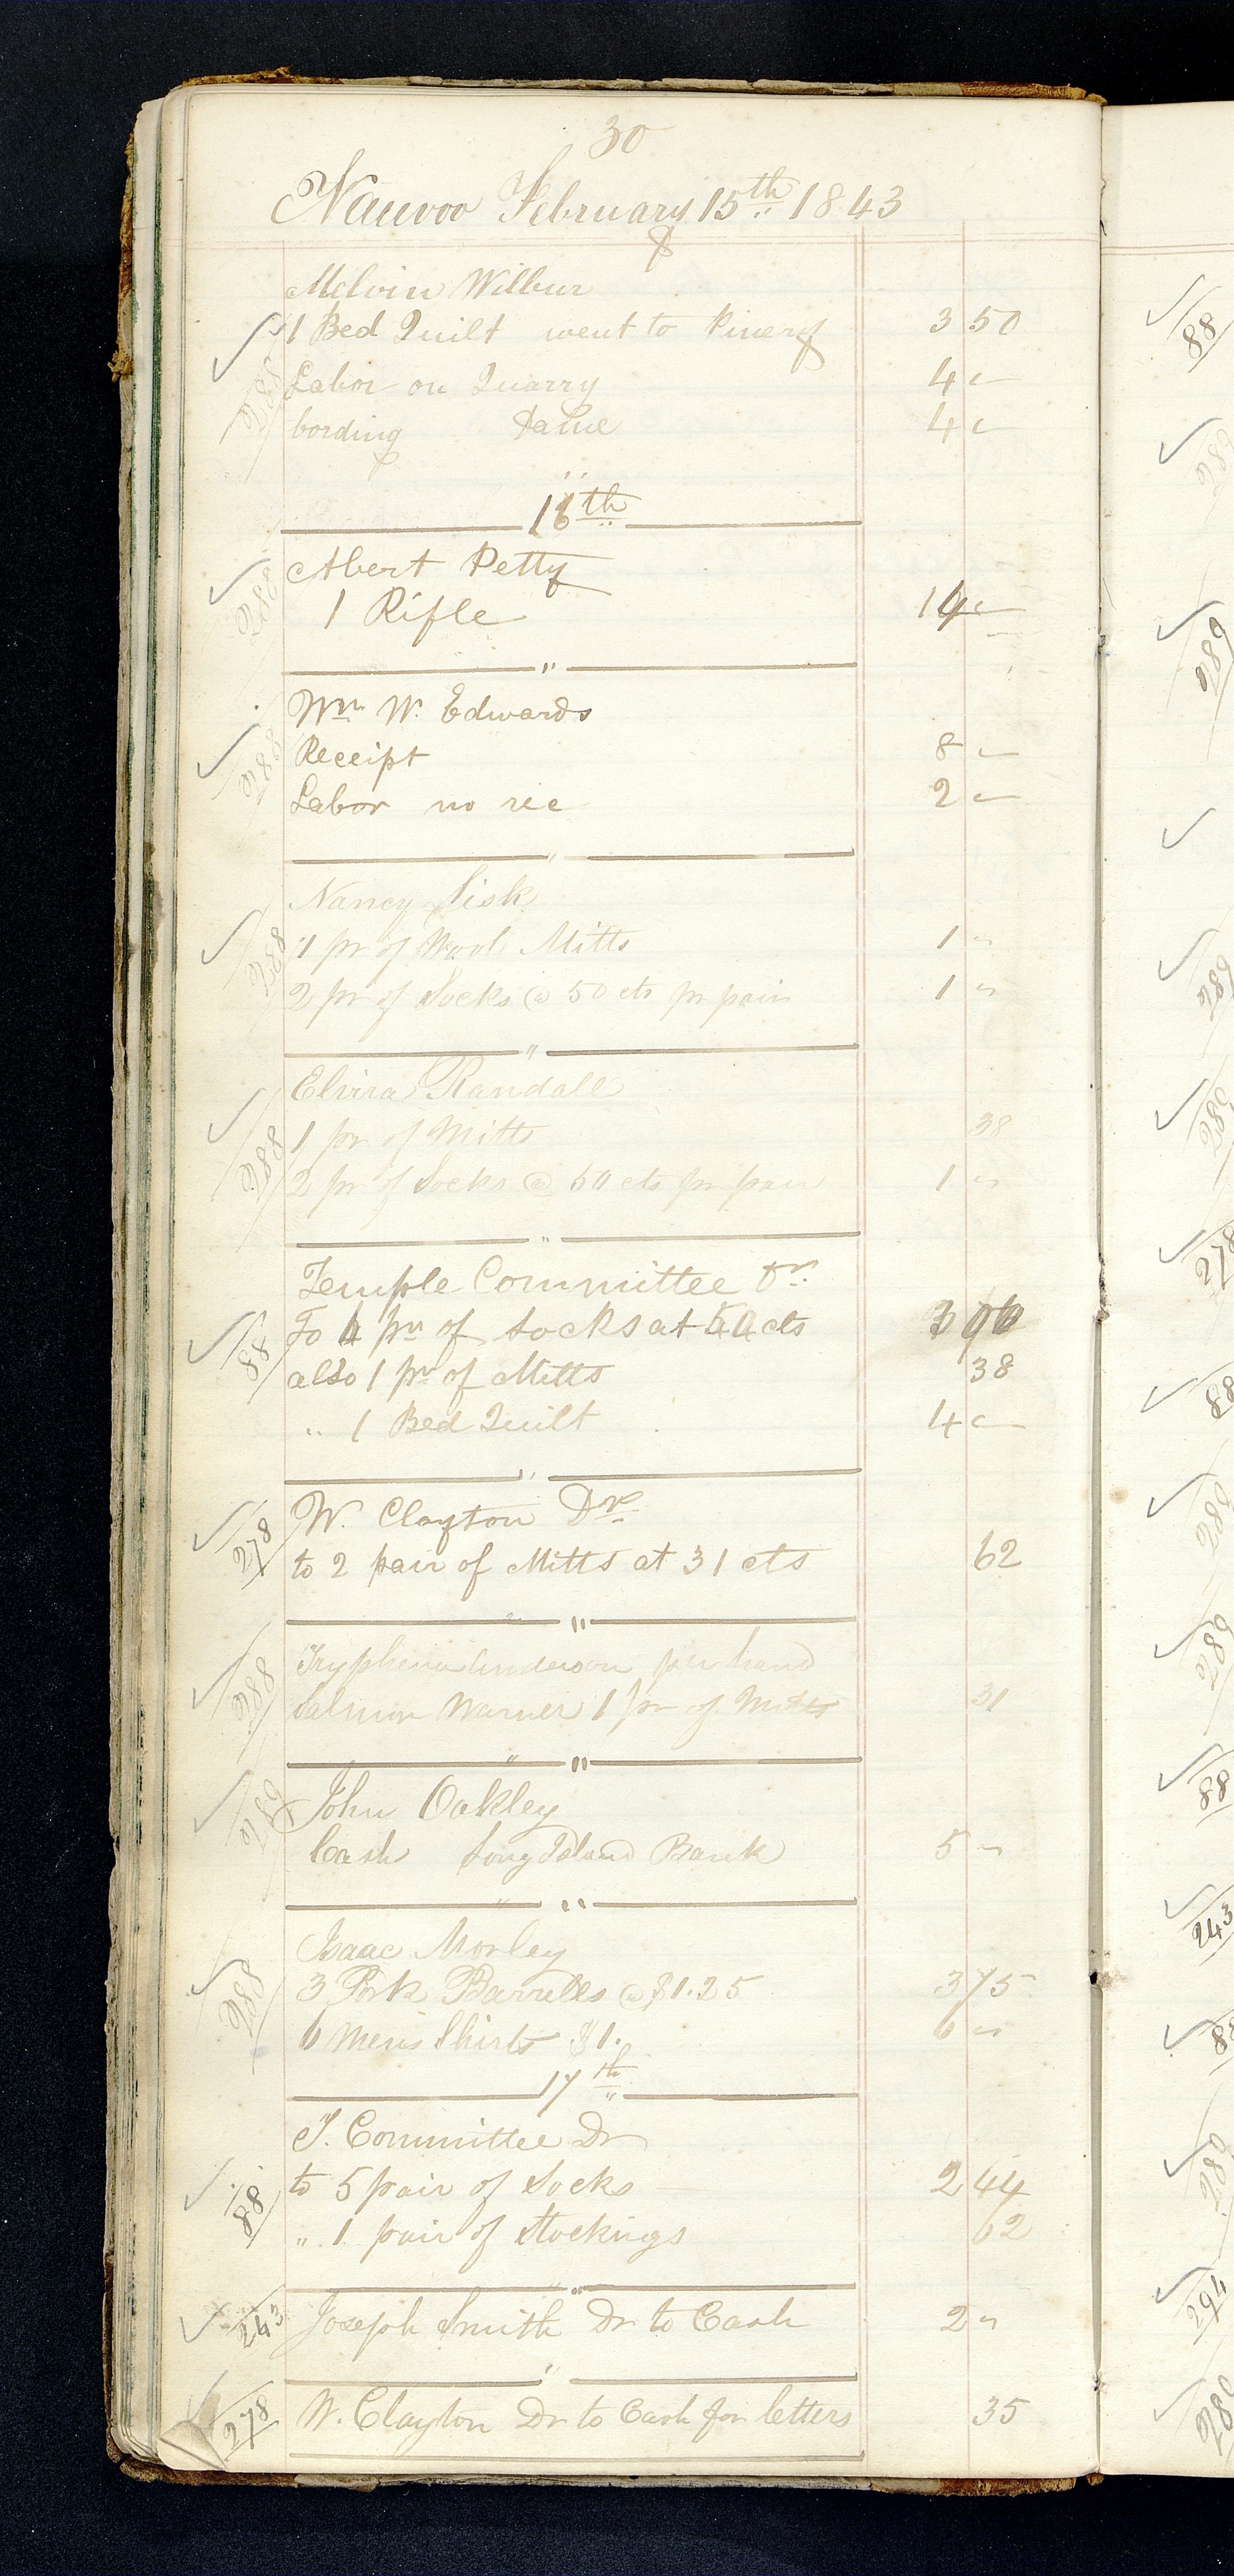 30
Nauvoo February 15th 1843
Melvin Wilbur
✓ 288 1 Bed Quilt went to Pinery 3 50
Labor on Quarry 4 "
bording Same 4 "
16th
✓ 288 Abert Petty
1 Rifle 14 "
"
Wm W. Edwards
✓ 288 Receipt 8 "
Labor no rec 2 "
"
Nancy Sisk
✓ 288 1 pr of Wool Mitts 1 "
2 pr of Socks @ 50 cts pr pair 1 "
"
Elvira Randall
✓ 288 1 pr of Mitts 38
2 pr of Socks @ 50 cts pr pair 1 "
"
Temple Committee Dr.
✓ 88 To pr of Socks at cts
also 1 pr of Mitts 38
" 1 Bed Quilt 4 "
"
✓ 278 W. Clayton Dr
to 2 pair of Mitts at 31 cts 62
"
✓ 288 Tryphena Anderson per hand
Salmon Warner 1 pr of Mitts 31
"
✓ 289 John Oakley
Cash Long Island Bank 5 "
"
Isaac Morley
✓ 288 3 Pork Barrells @ $1.25 3 75
6 Mens Shirts $1. 6 "
17th
T. Committee Dr
✓ 88 to 5 pair of Socks 2 44
" 1 pair of Stockings 62
"
✓ 243 Joseph Smith Dr to Cash 2 "
"
✓ 278 W. Clayton Dr to Cash for letters 35
✓ 88
✓ 289
✓ 289
✓
✓ 289
✓ 289
✓ 278
✓ 88
✓ 289
✓ 289
✓ 88
✓ 243
✓ 88
✓ 289
✓ 294
✓ 289